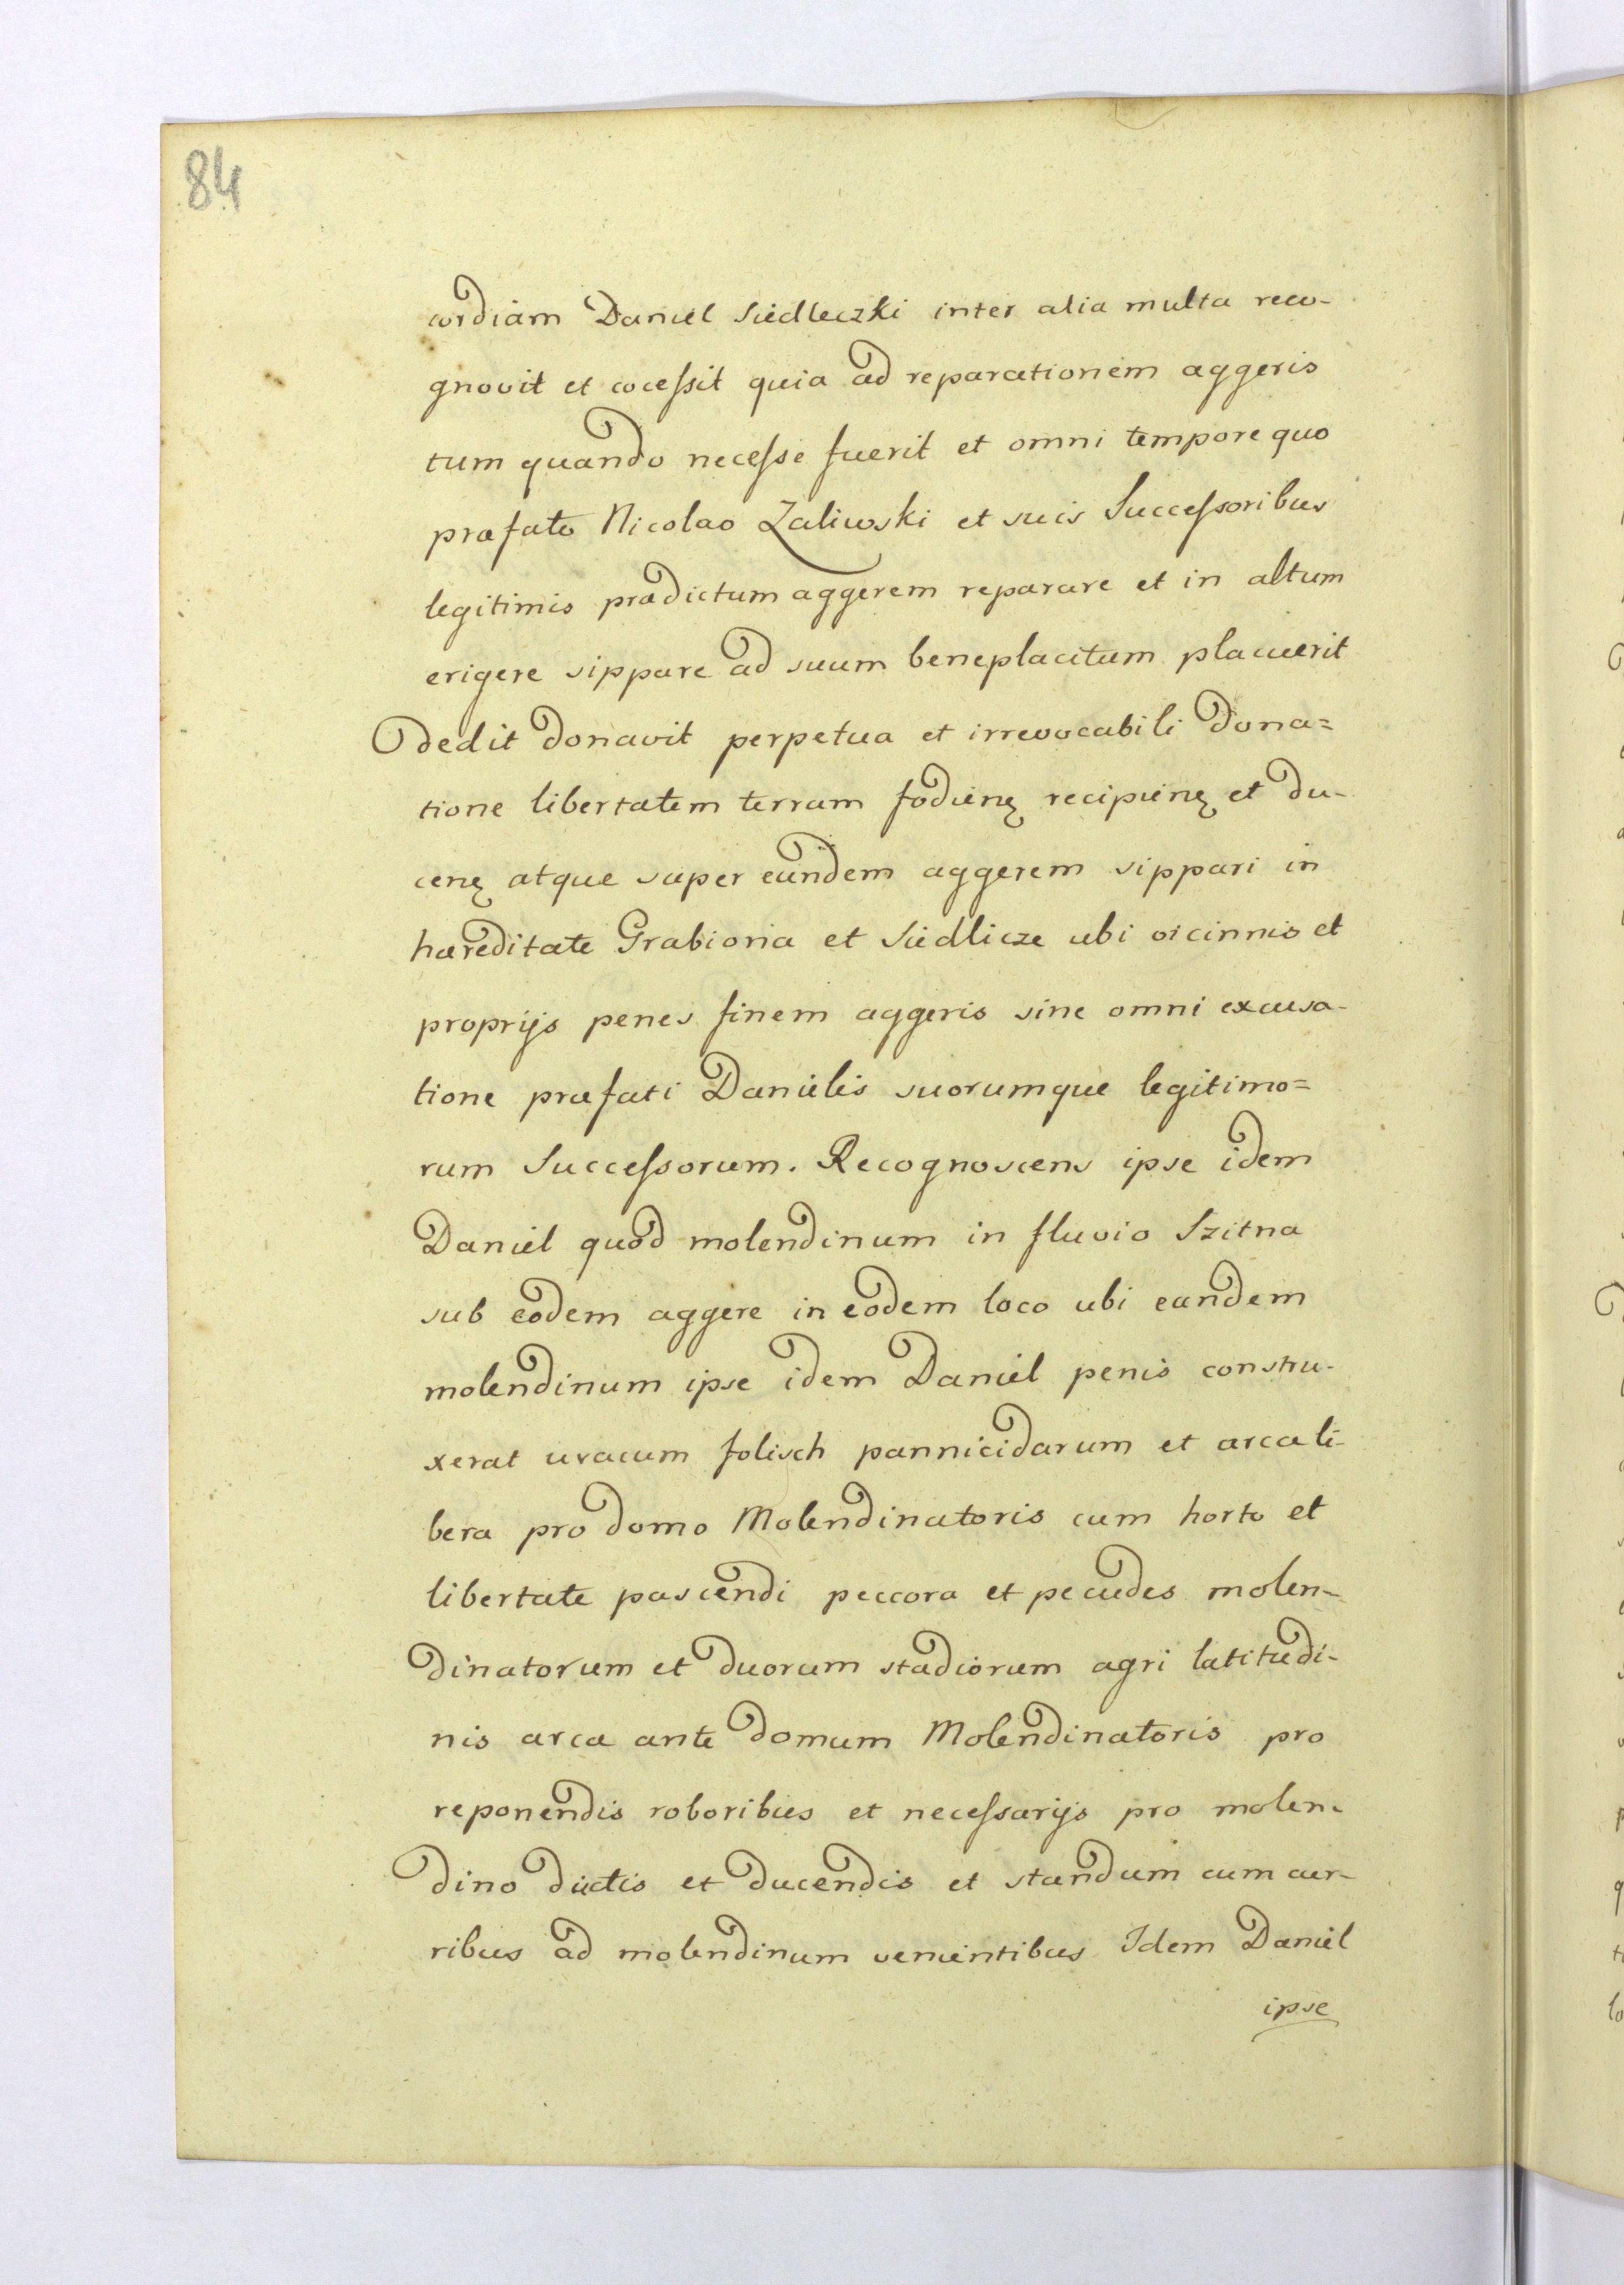 84
cordiam Daniel Siedleczki inter alia multa reco-
gnovit et cocessit quia ad reparationem aggeris
tum quando necesse fuerit et omni tempore quo
præfato Nicolao Zaliwski et suis Successoribus
legitimis prædictum aggerem reparare et in altum
erigere sippare ad suum beneplacitum placuerit
dedit donavit perpetua et irrevocabili dona=
tione libertatem terram fodienȩ recipienȩ et du-
cenȩ atque super eundem aggerem sippari in
hæreditate Grabiona et Siedlicze ubi vicinnis et
proprijs penes finem aggeris sine omni excusa-
tione præfati Danielis suorumque legitimo=
rum Successorum. Recognoscens ipse idem
Daniel quod molendinum in fluvio Szitna
sub eodem aggere in eodem loco ubi eundem
molendinum ipse idem Daniel penis constru-
xerat unacum folisch pannicidarum et area li-
bera pro domo Molendinatoris cum horto et
libertate pascendi peccora et pecudes molen-
dinatorum et duorum stadiorum agri latitudi-
nis area ante domum Molendinatoris pro
reponendis roboribus et necessarijs pro molen-
dino ductis et ducendis et standum cum cur-
ribus ad molendinum venientibus Idem Daniel
ipse